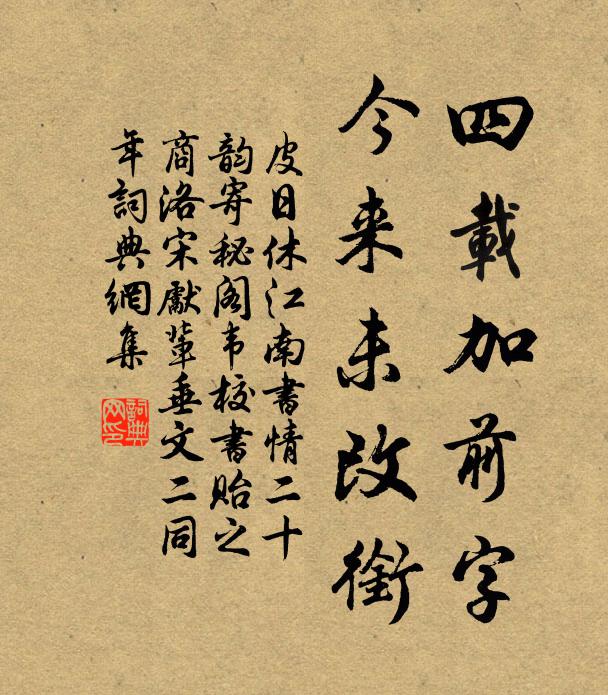 四載加前字
今来未改銜
皮日休江南書情二十
韵寄秘阁韦校書貽之
商洛宋獻輩垂文二同
年詞典網集
詞典
网印